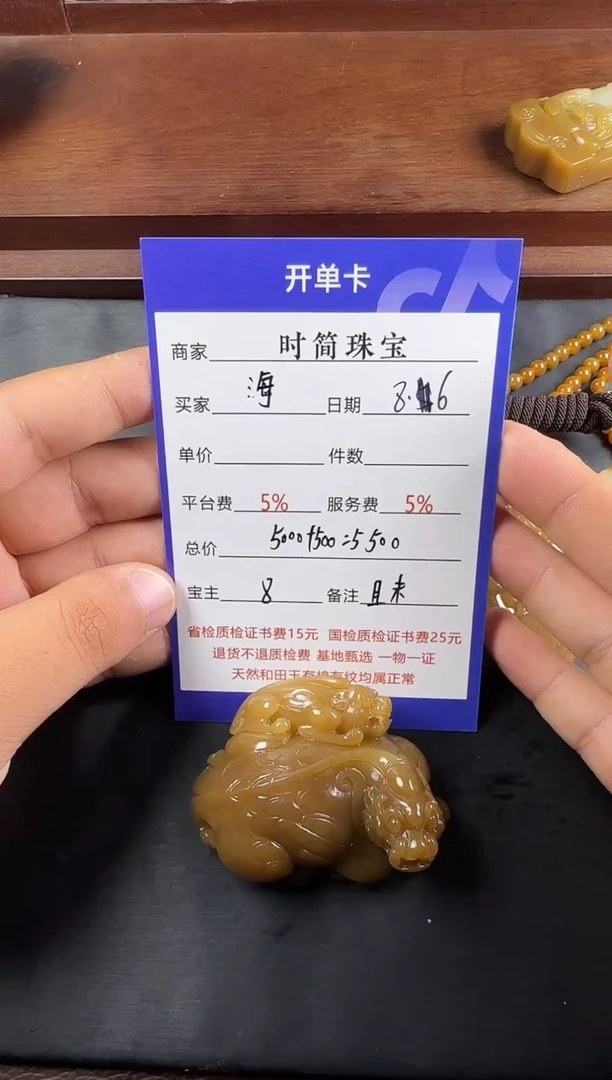 开单卡
商家 时简珠宝
买家 海 日期 8.6
单价 件数
平台费 5% 服务费 5%
总价 5000+500=5500
宝主 8 备注 且末
省检质检证书费15元 国检质检证书费25元
退货不退质检费 基地甄选 一物一证
天然和田玉有棉有纹均属正常